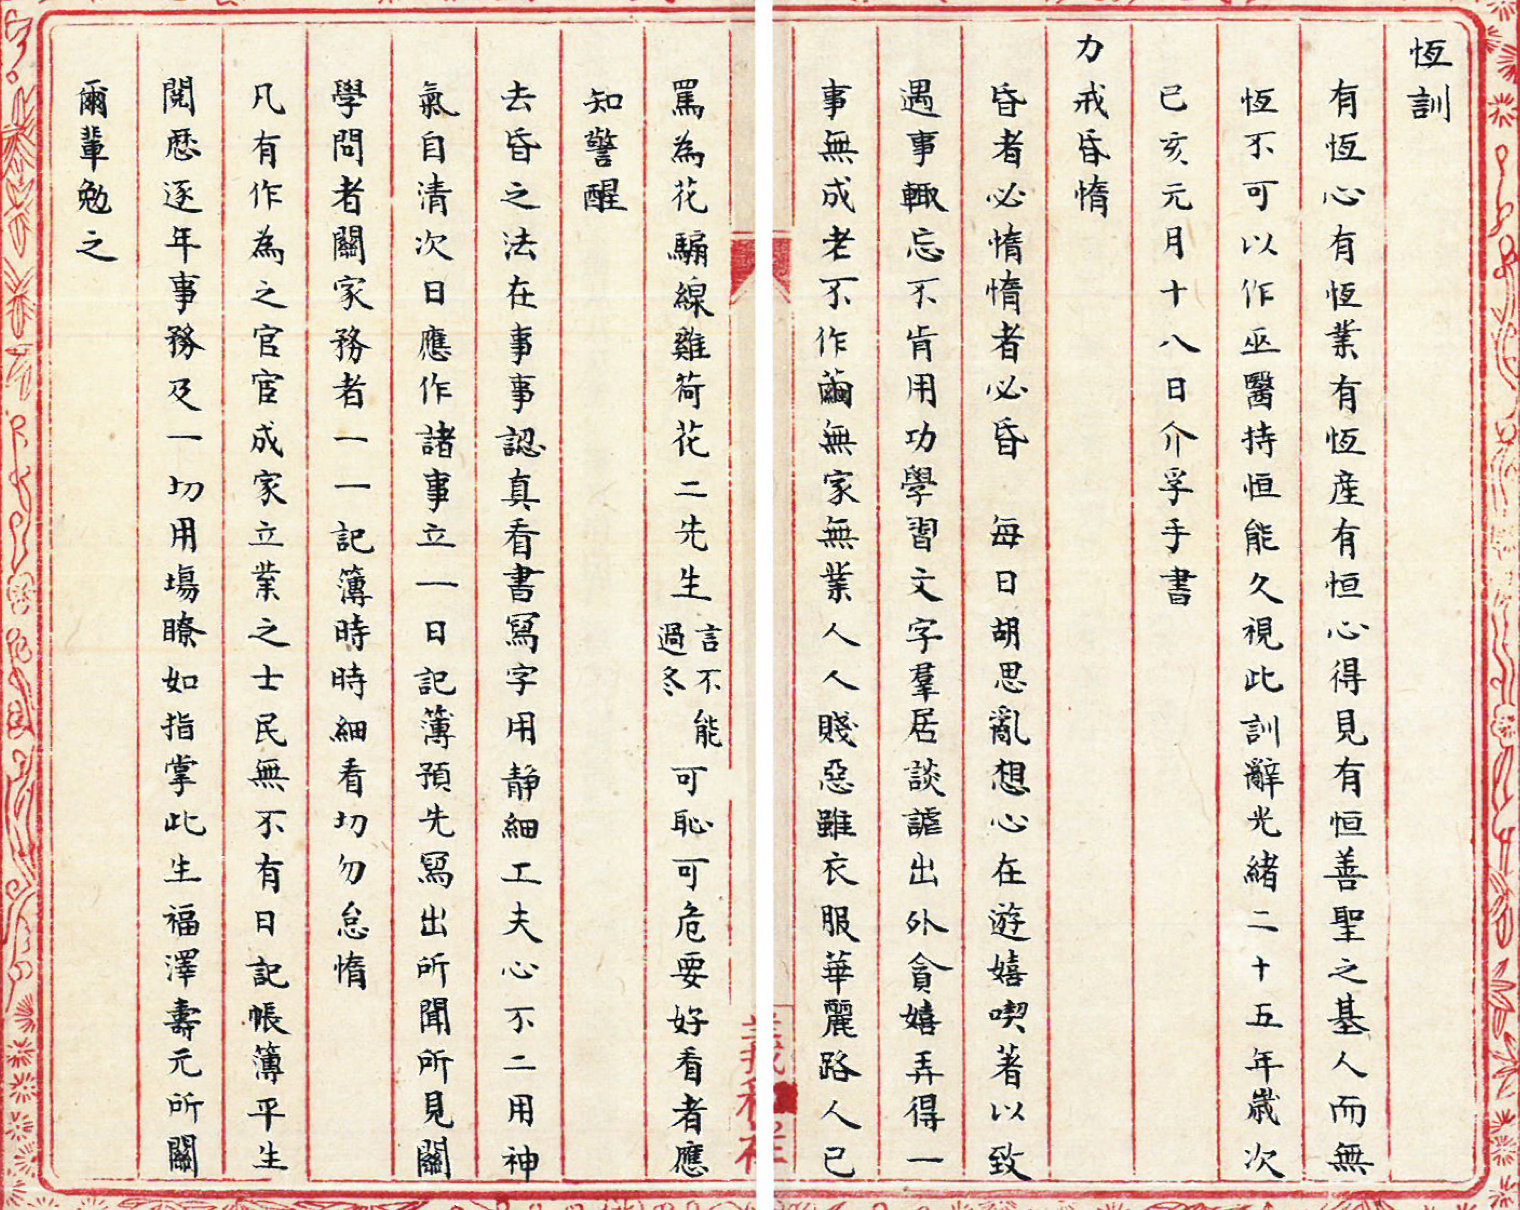 恆訓
有恆心有恆業有恆產有恒心得見有恒善聖之基人而無
恆不可以作巫醫持恒能久視此訓辭光緒二十五年歲次
已亥元月十八日介孚手書
力戒昏惰
昏者必惰惰者必昏 每日胡思亂想心在遊嬉喫著以致
遇事輒忘不肯用功學習文字羣居談謔出外貪嬉弄得一
事無成老不作繭無家無業人人賤惡雖衣服華麗路人已
罵為花騸線雞荷花二先生言不能過冬可恥可危要好看者應
知警醒
去昏之法在事事認真看書寫字用靜細工夫心不二用神
氣自清次日應作諸事立一日記簿預先寫出所聞所見關
學問者關家務者一一記簿時時細看切勿怠惰
凡有作為之官宦成家立業之士民無不有日記帳簿平生
閱歷逐年事務及一切用場瞭如指掌此生福澤壽元所關
爾輩勉之